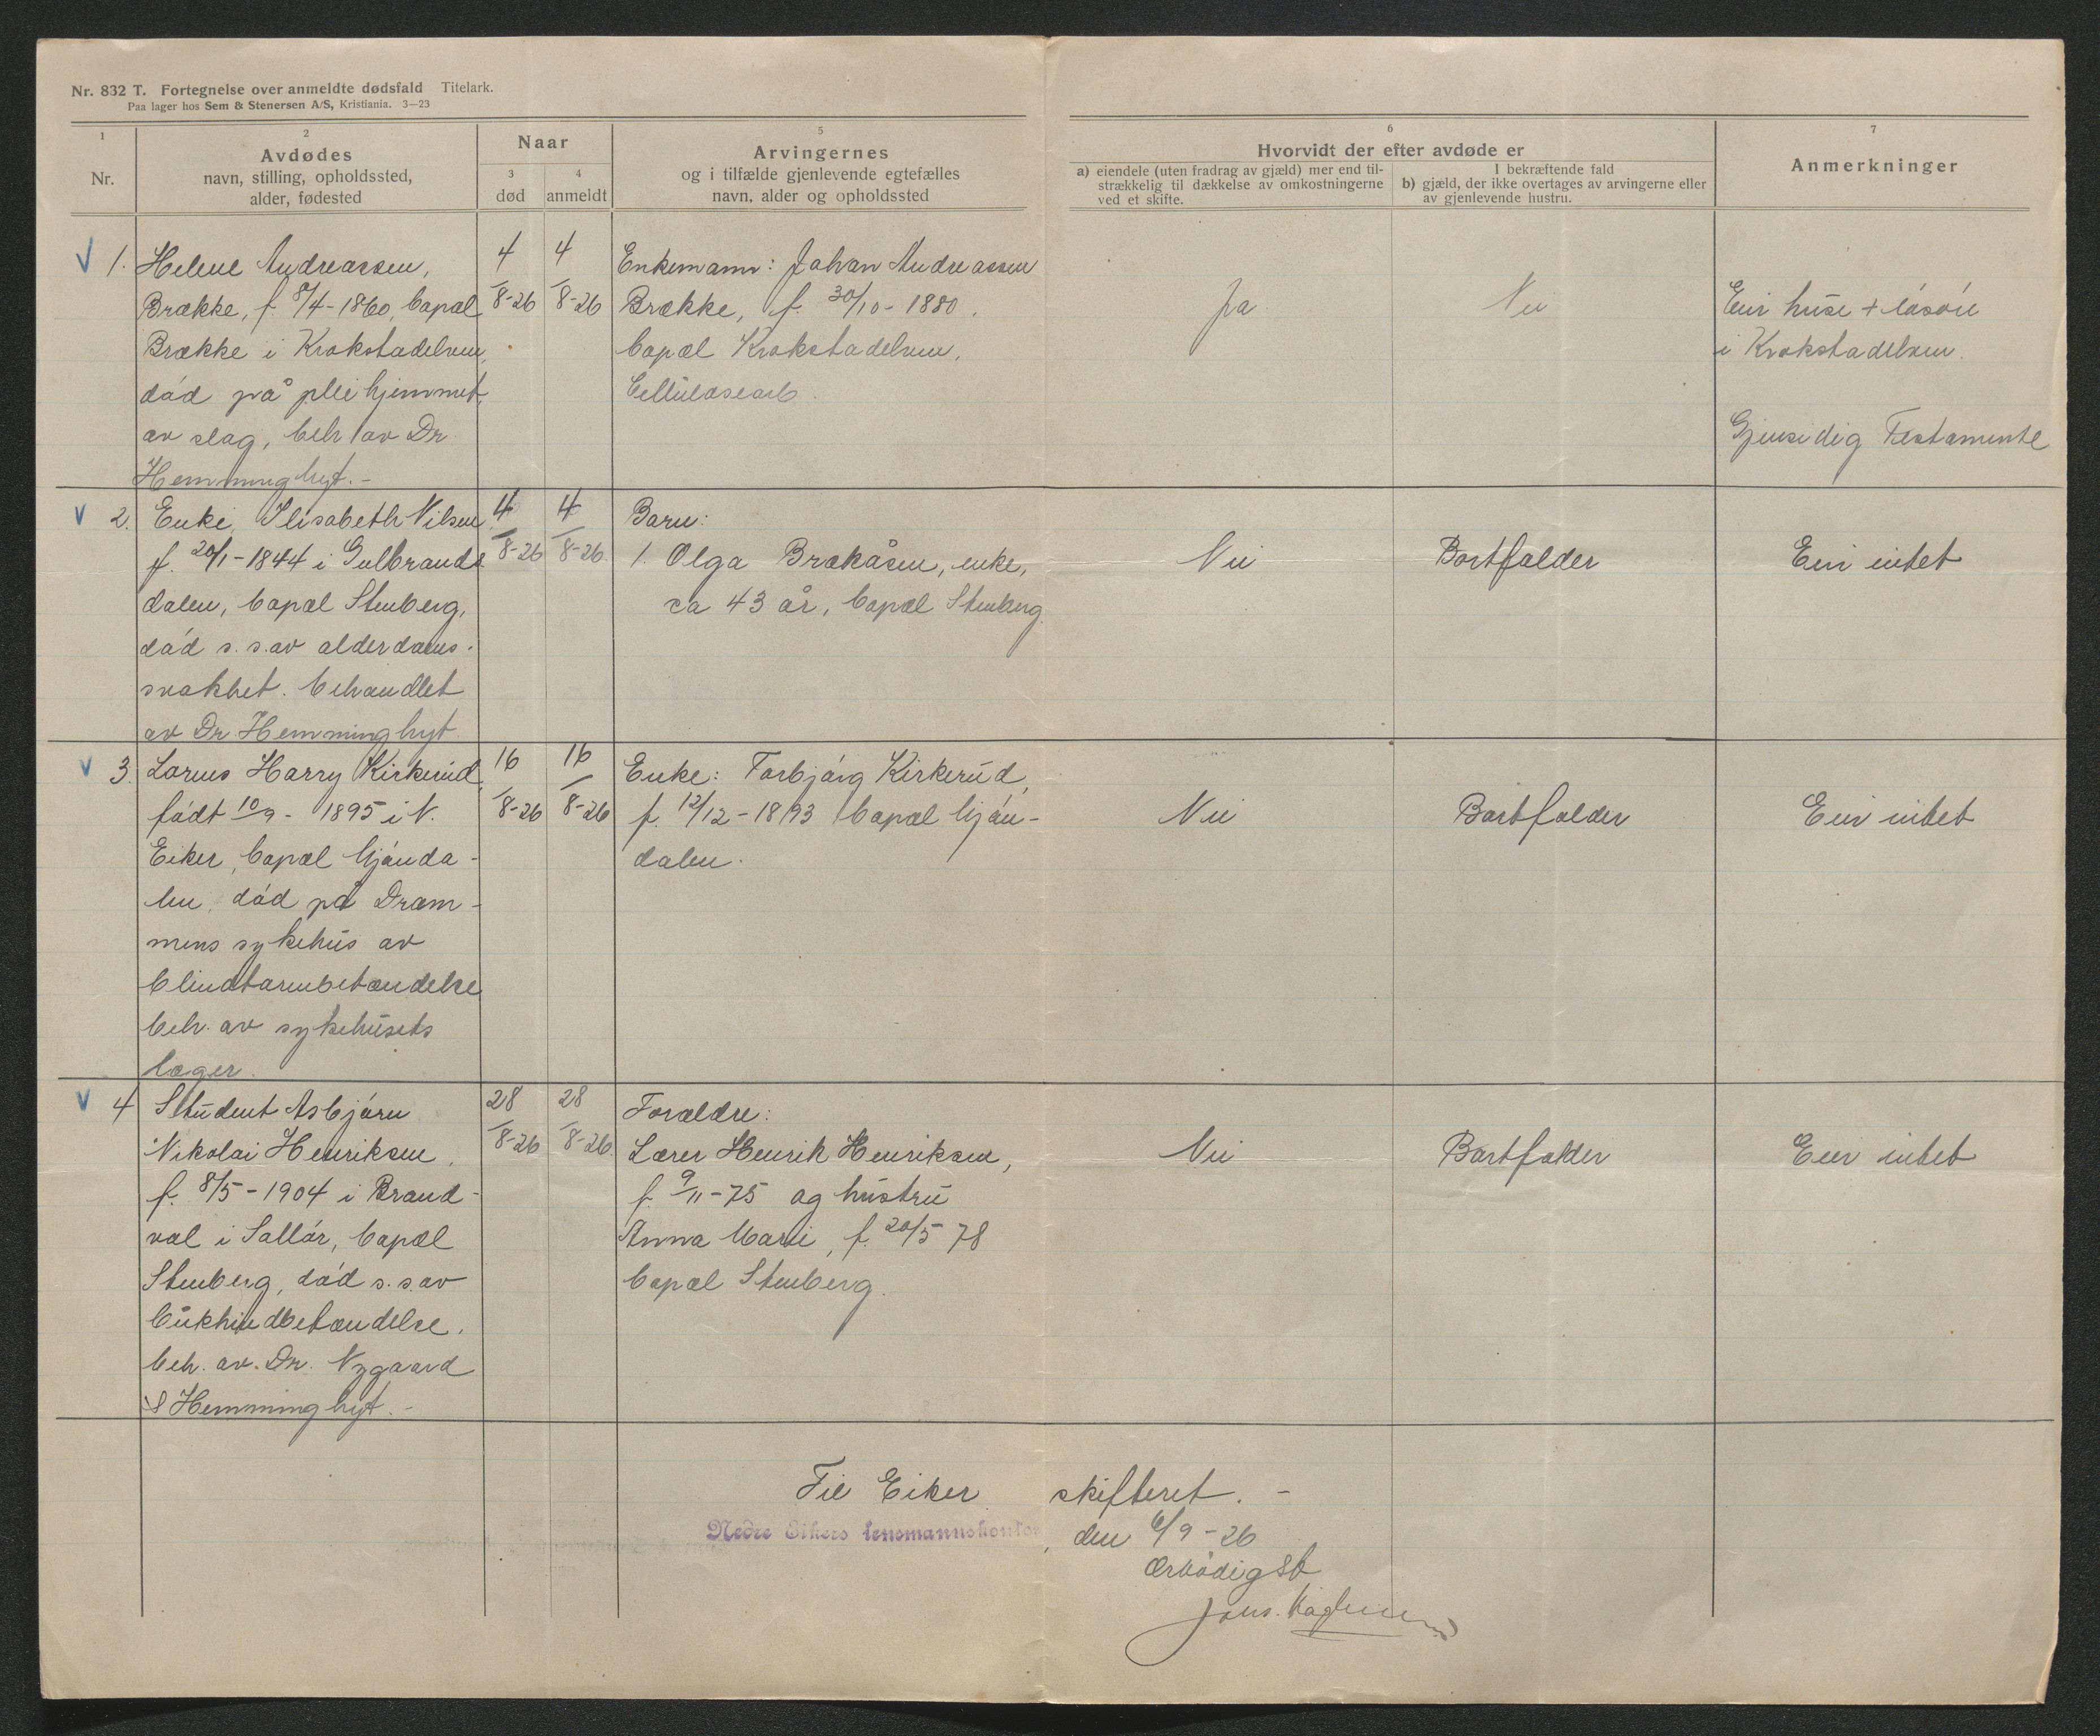 Nr. 832 T. Fortegnelse over anmeldte dødsfald Titelark.
Paa lager hos Sem & Stenersen A/S, Kristiania. 3—23
1
Nr.
2
Avdødes
navn, stilling, opholdssted,
alder, fødested
Naar
3
død
4
anmeldt
5
Arvingernes
og i tilfælde gjenlevende egtefælles
navn, alder og opholdssted
6
Hvorvidt der efter avdøde er
a) eiendele (uten fradrag av gjæld) mer end til-
strækkelig til dækkelse av omkostningerne
ved et skifte.
I bekræftende fald
b) gjæld, der ikke overtages av arvingerne eller
av gjenlevende hustru.
7
Anmerkninger
1.
Helene Andreassen,
Brække, f. 8/4-1860, bopæl
Brække i Krokstadelven,
død på pleihjemmet,
av slag, beh. av Dr.
Hemminghyt.-
4
/8-26
4
/8-26
Enkemann: Johan Andreassen
Brække, f. 30/10-1880.
bopæl Krokstadelven.
Cellulosearb.
Ja
Nei
Eier huse + løsøre
i Krokstadelven.
Gjensidig Testamente
2.
Enke, Elisabeth Nilsen
f. 20/1-1844 i Gulbrands
dalen, bopæl Stenberg,
død s.s. av alderdoms-
svakhet. behandlet
av Dr Hemminghyt.
4
/8-26
4
/8-26.
Barn:
1. Olga Brækåsen, enke,
ca 43 år, bopæl Stenberg.
Nei
Bortfalder
Eier intet
3.
Lorens Harry Kirkerud,
født 10/9- 1895 i N.
Eiker, bopæl Mjønda-
len, død på Dram-
mens sykehus av
blindtarmbetændelse
beh. av sykehusets
læger.
16
/8-26
16
/8-26
Enke: Torbjørg Kirkerud,
f. 12/12-1893 bopæl Mjøn-
dalen.
Nei
Bortfalder
Eier intet
4
Student Asbjørn
Nikolai Henriksen,
f. 8/5-1904 i Brand-
val i Solør, bopæl
Stenberg, død s.s. av
bukhindbetændelse.
beh. av. Dr. Nygaard
& Hemminghyt.-
28
/8-26
28
/8-26.
Forældre:
Lærer Henrik Henriksen,
f. 9/11-75 og hustru
Anna Marie, f. 20/5 78
bopæl Stenberg.
Nei
Bortfalder
Eier intet
Til Eiker skifteret. -
Nedre Eikers lensmannskontor, den 6/9-26
Ærbødigst